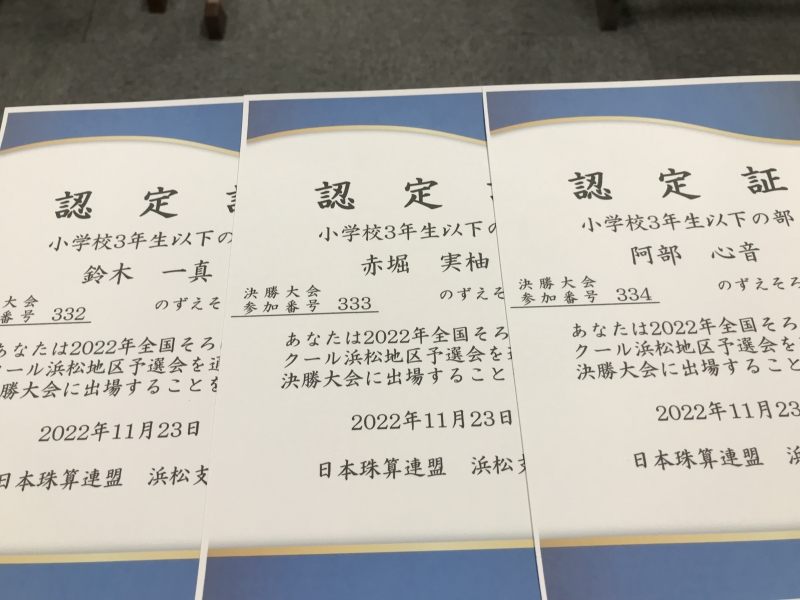 認 定
小学校3年生以下の
鈴木 一真
大会
番号 332
のずえそ
あなたは2022年全国そろ
クール浜松地区予選会を
勝大会に出場することを
2022年11月23日
日本珠算連盟 浜松支
認 定
小学校3年生以下の
赤堀 実柚
決勝大会
参加番号 333
のずえそ
あなたは2022年全国そろ
クール浜松地区予選会を
決勝大会に出場すること
2022年11月23日
日本珠算連盟 浜松支
認 定 証
小学校3年生以下の部
阿部 心音
決勝大会
参加番号 334
のずえそろ
あなたは2022年全国そろ
クール浜松地区予選会を
決勝大会に出場すること
2022年11月23
日本珠算連盟 浜